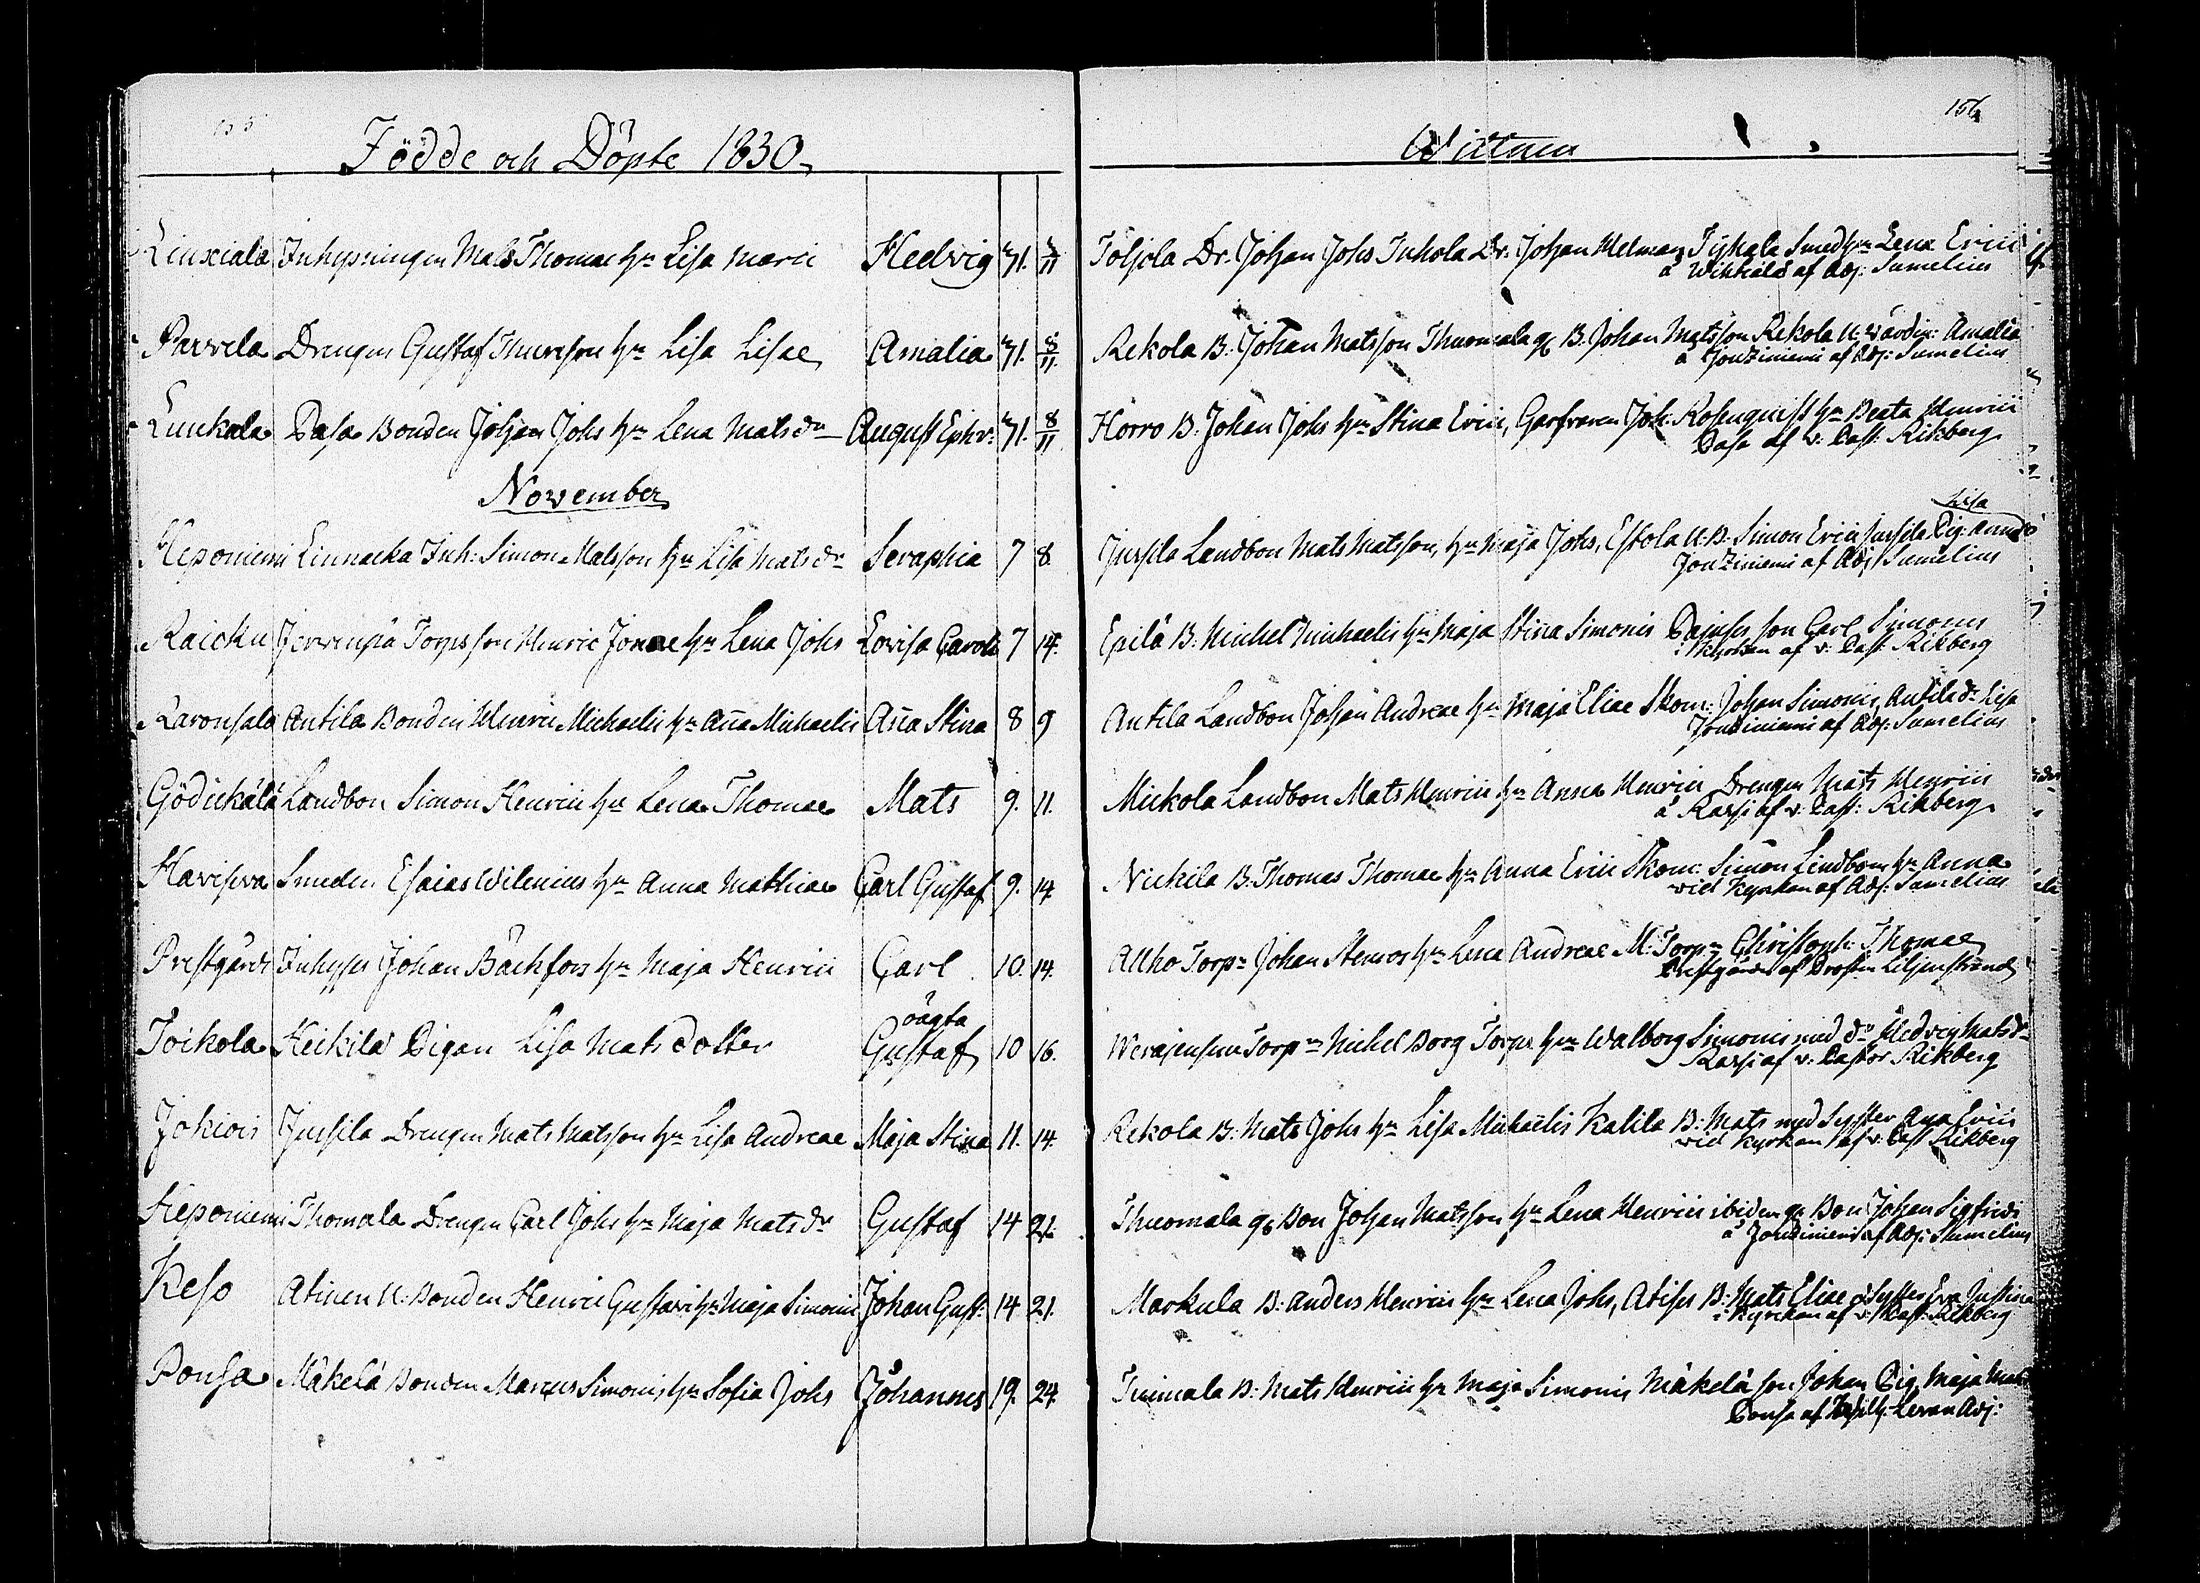 155
Födde och Döpte 1830
Liuxiala Inhysningen Mats Thomae hu Lisa Marci Hedvig 31. 7/11
Parvela Drengen Gustaf Thureson hu Lisa Lisae Amalia 31. 8/11
Lunkala Pasa Bonden Johan Johs hu Lena Matsdr August Ephr: 31. 8/11
November
Heponiemi Linnacka Inh: Simon Matsson hu Lisa Matsdr Seraphia 7 8.
Raicku Torps son Henric Jonae hu Lena Johs Lovisa Carol: 7 14.
Ravonsala Antila Bonden Henric Michaelis hu Aña Michaelis Aña Stina 8 9
Landbon Simon Henrici hu Lena Thomae Mats 9. 11.
Haviseva Smeden Esaias Wilenius hu Anna Matthiae Carl Gustaf 9. 14
Prestgård Inhyses Johan Bäckfors hu Maja Henrici Carl 10. 14.
Toikola Heikilä Pigan Lisa Matsdotter oägta Gustaf 10 16.
Jokiois Jussila Drengen Mats Matsson hu Lisa Andreae Maja Stina 11. 14.
Heponiemi Thomala Drengen Carl Johs hu Maja Matsdr Gustaf 14 21.
Keso Atinen U: Bonden Henric Gustavi hu Maja Simonis Johan Gust: 14 21.
Ponsa Mäkelä Bonden Marcus Simonis hu Sofia Johs Johannes 19. 24.
156
Wittnen
Toljola Dr. Johan Johs Inhola Dr: Johan Melman, Smed hu Lena Erici
å af Adj: Sumelius
Rekola B: Johan Matsson Thuomala B. Johan Matsson Rekola U: värdin: Amalia
å Joutziniemi af Adj: Sumelius
Horro B. Johan Johs hu Stina Erici, Garfvaren Joh: Rosenquist hu Beata Henrici
Pasa af v: Past: Rikberg
Lisa
Jussila Landbon Mats Matsson, hu Maja Johs, Estola U.B. Simon Erici Jussila Pig:
Joutziniemi af Adj Sumelius
Epilä B. Michel Michaelis hu Maja Stina Simonis son Carl Simonis
i Kyrkan af v: Past: Rikberg
Antila Landbon Johan Andreae hu Maja Eliae Skom: Johan Simonis, Antila dr Lisa
Joutziniemi af Adj: Sumelius
Mickola Landbon Mats Henrici hu Anna Henrici Drengen Mats Henrici
å Karsi af v: Past: Rikberg
Nickila B. Thomas Thomae hu Anna Erici Skom: Simon Lindbom hu Anna
vid Kyrkan af Adj: Sumelius
Alho Torpr Johan Stenros hu Lena Andreae M: Torpr Christoph: Thomae
Prestgården af Prosten Liljenstrand
Torpr Michel Borg Torpr hu Walborg Simonis med dr Hedvig Matsdr
Karsi af v: Pastor Rikberg
Rekola B: Mats Johs hu Lisa Michaelis Kalila B: Mats med Syster Aña Erici
vid Kyrkan af v: Past Rikberg
Thuomala Bon Johan Matsson hu Lena Henrici ibidem Bon Johan Sigfridi
å Joutziniemi af Adj: Sumelius
Markula B: Anders Henrici hu Lena Johs, B: Mats Eliae Syster Eva Justina
i Kyrkan af v: Past: Rikberg
B: Mats Henrici hu Maja Simonis Mäkelä son Johan Pig Maja
Ponsa af Adj: